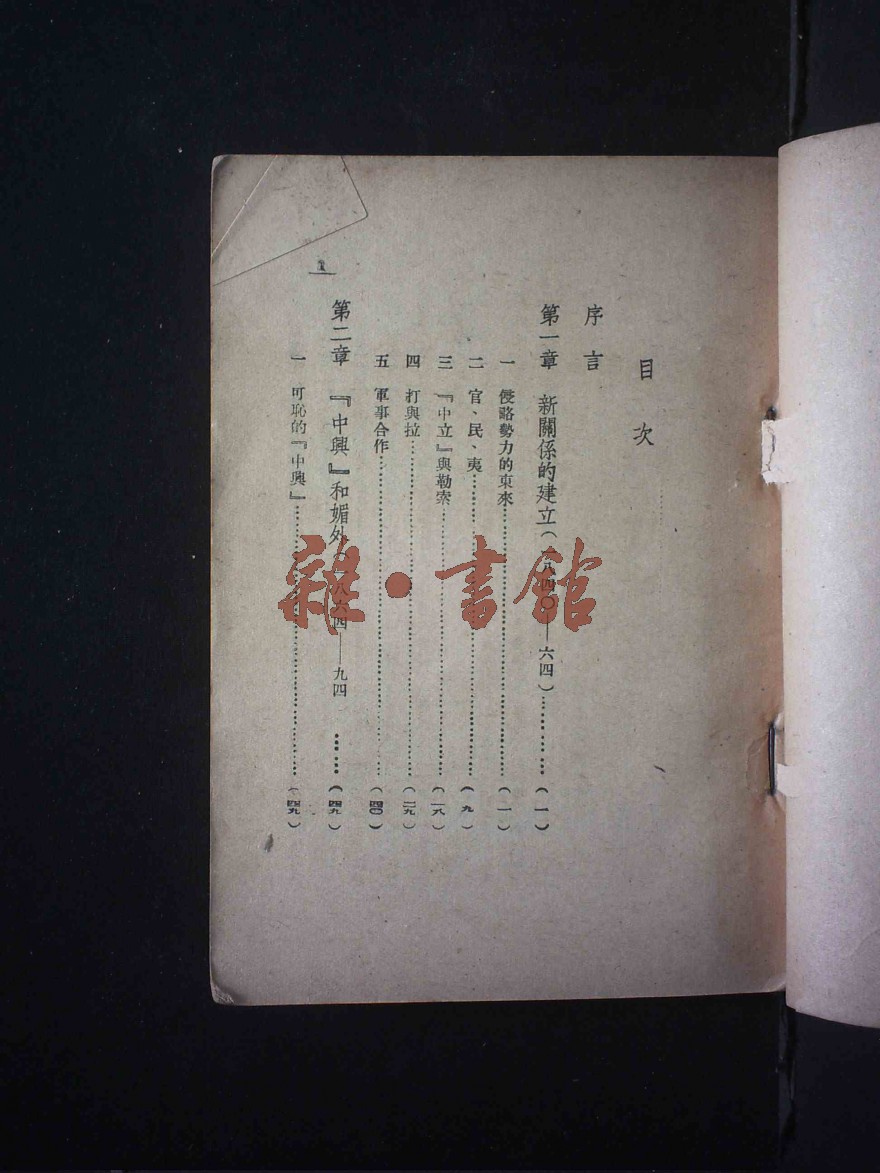 目次
序言
第一章 新關係的建立(一八四〇——六四)…………(一)
一 侵略勢力的東來…………(一)
二 官、民、夷…………(九)
三 『中立』與勒索…………(一八)
四 打與拉…………(二九)
五 軍事合作…………(四〇)
第二章 『中興』和媚外(一八六四——九四 ……(四九)
一 可恥的『中興』…………(四九)
1
雜·書館